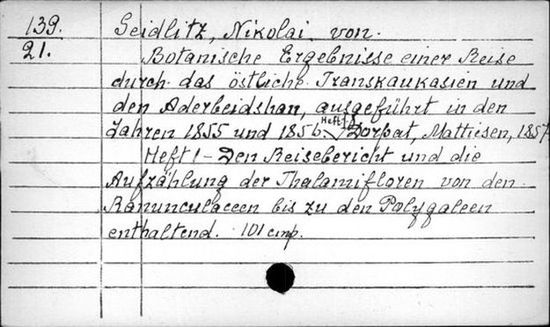 139.
21.
Seidlitz, Nikolai von.
Botanische Ergebnisse einer Reise
durch das östliche Transkaukasien und
den Aderbeidshan, ausgeführt in den
Jahren 1855 und 1856. Heft 1. Dorpat, Mattiesen, 1857
Heft 1 - Den Reisebericht und die
Aufzählung der Thalamifloren von den
Ranunculaceen bis zu den Polygaleen
enthaltend. 101 стр.